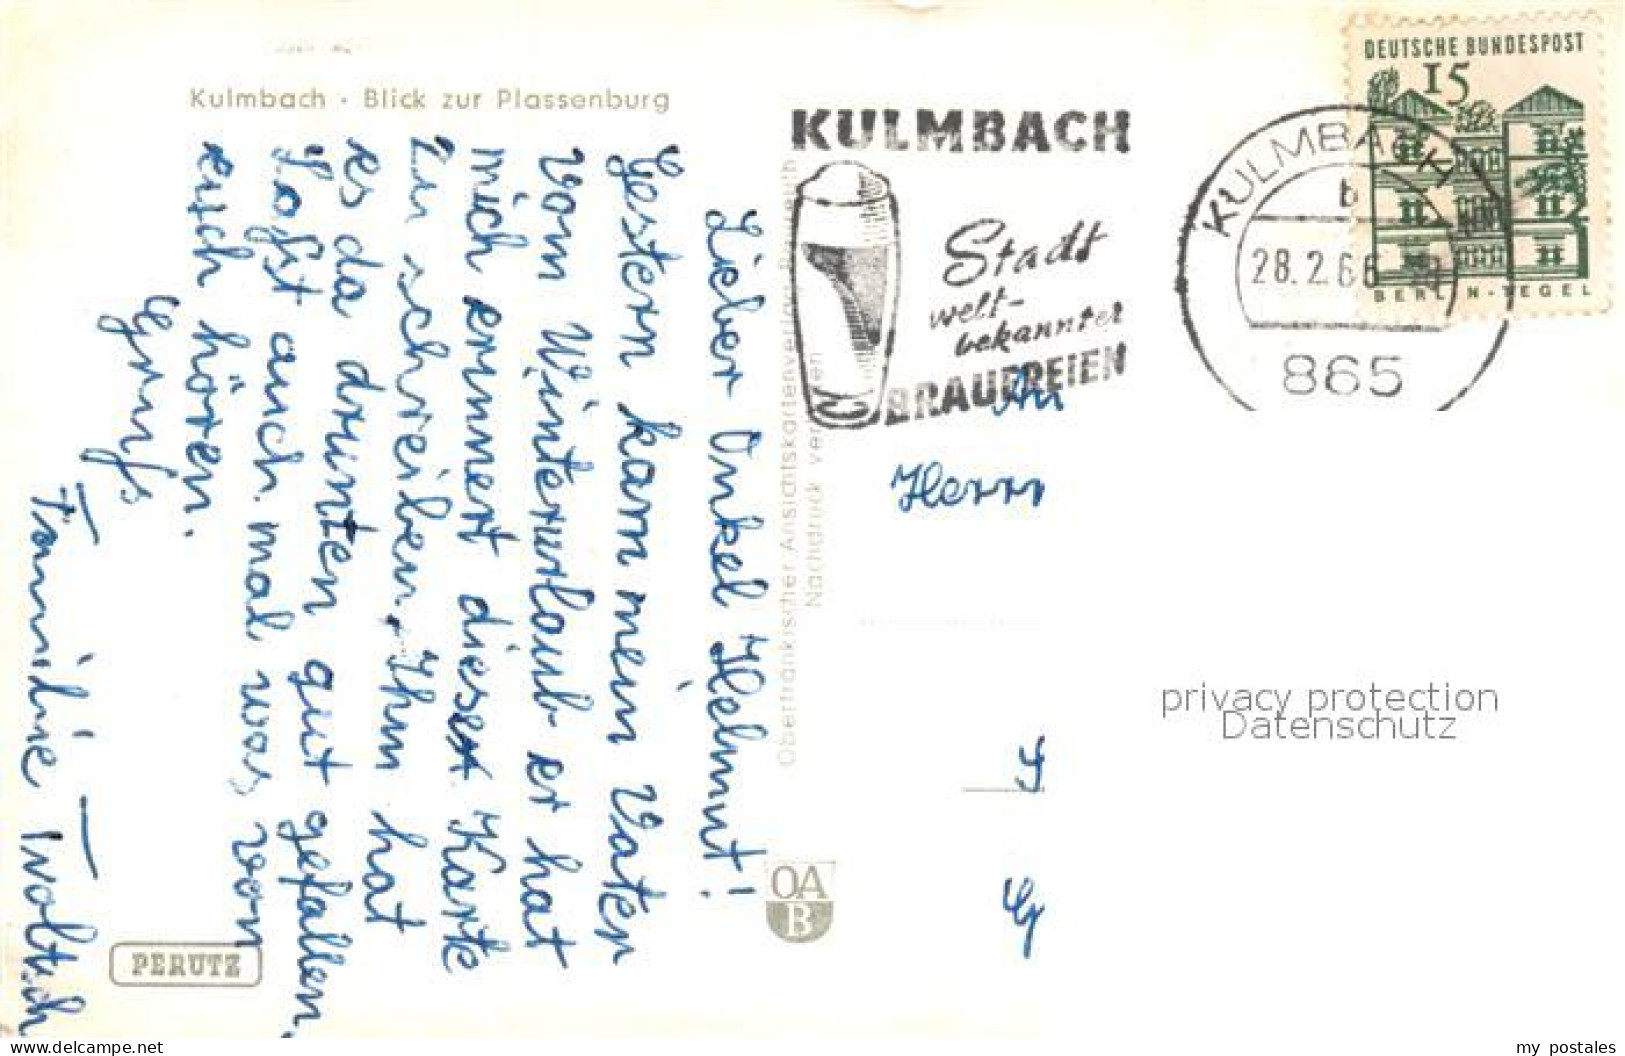 Kulmbach · Blick zur Plassenburg
Lieber Onkel Helmut!
Gestern kam mein Vater
vom Winterurlaub er hat
mich erinnert diese Karte
zu schreiben. Ihm hat
es da drunten gut gefallen.
Laßt auch mal was von
euch hören.
Gruß
Familie
PERUTZ
Oberfränkischer Ansichtskartenverlag Bayreuth
Nachdruck verboten
OAB
KULMBACH
Stadt
welt-
bekannter
BRAUEREIEN
KULMBACH
b
28.2.66
865
DEUTSCHE BUNDESPOST
15
BERLIN-TEGEL
An
Herrn
privacy protection
Datenschutz
www.delcampe.net
my_postales